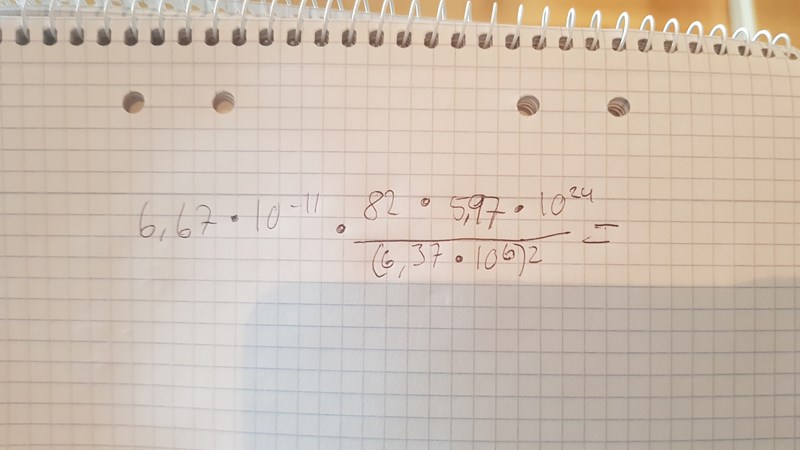 6,67 · 10⁻¹¹ · (82 · 5,97 · 10²⁴) / (6,37 · 10⁶)² =